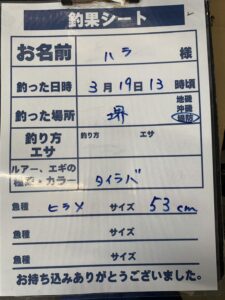 釣果シート
お名前 ハラ 様
釣った日時 3月19日13時頃
釣った場所 堺 地磯 沖磯 堤防
釣り方 エサ 釣り方 エサ
ルアー、エギの種類・カラー タイラバ
魚種 ヒラメ サイズ 53cm
魚種 サイズ
魚種 サイズ
お持ち込みありがとうございました。